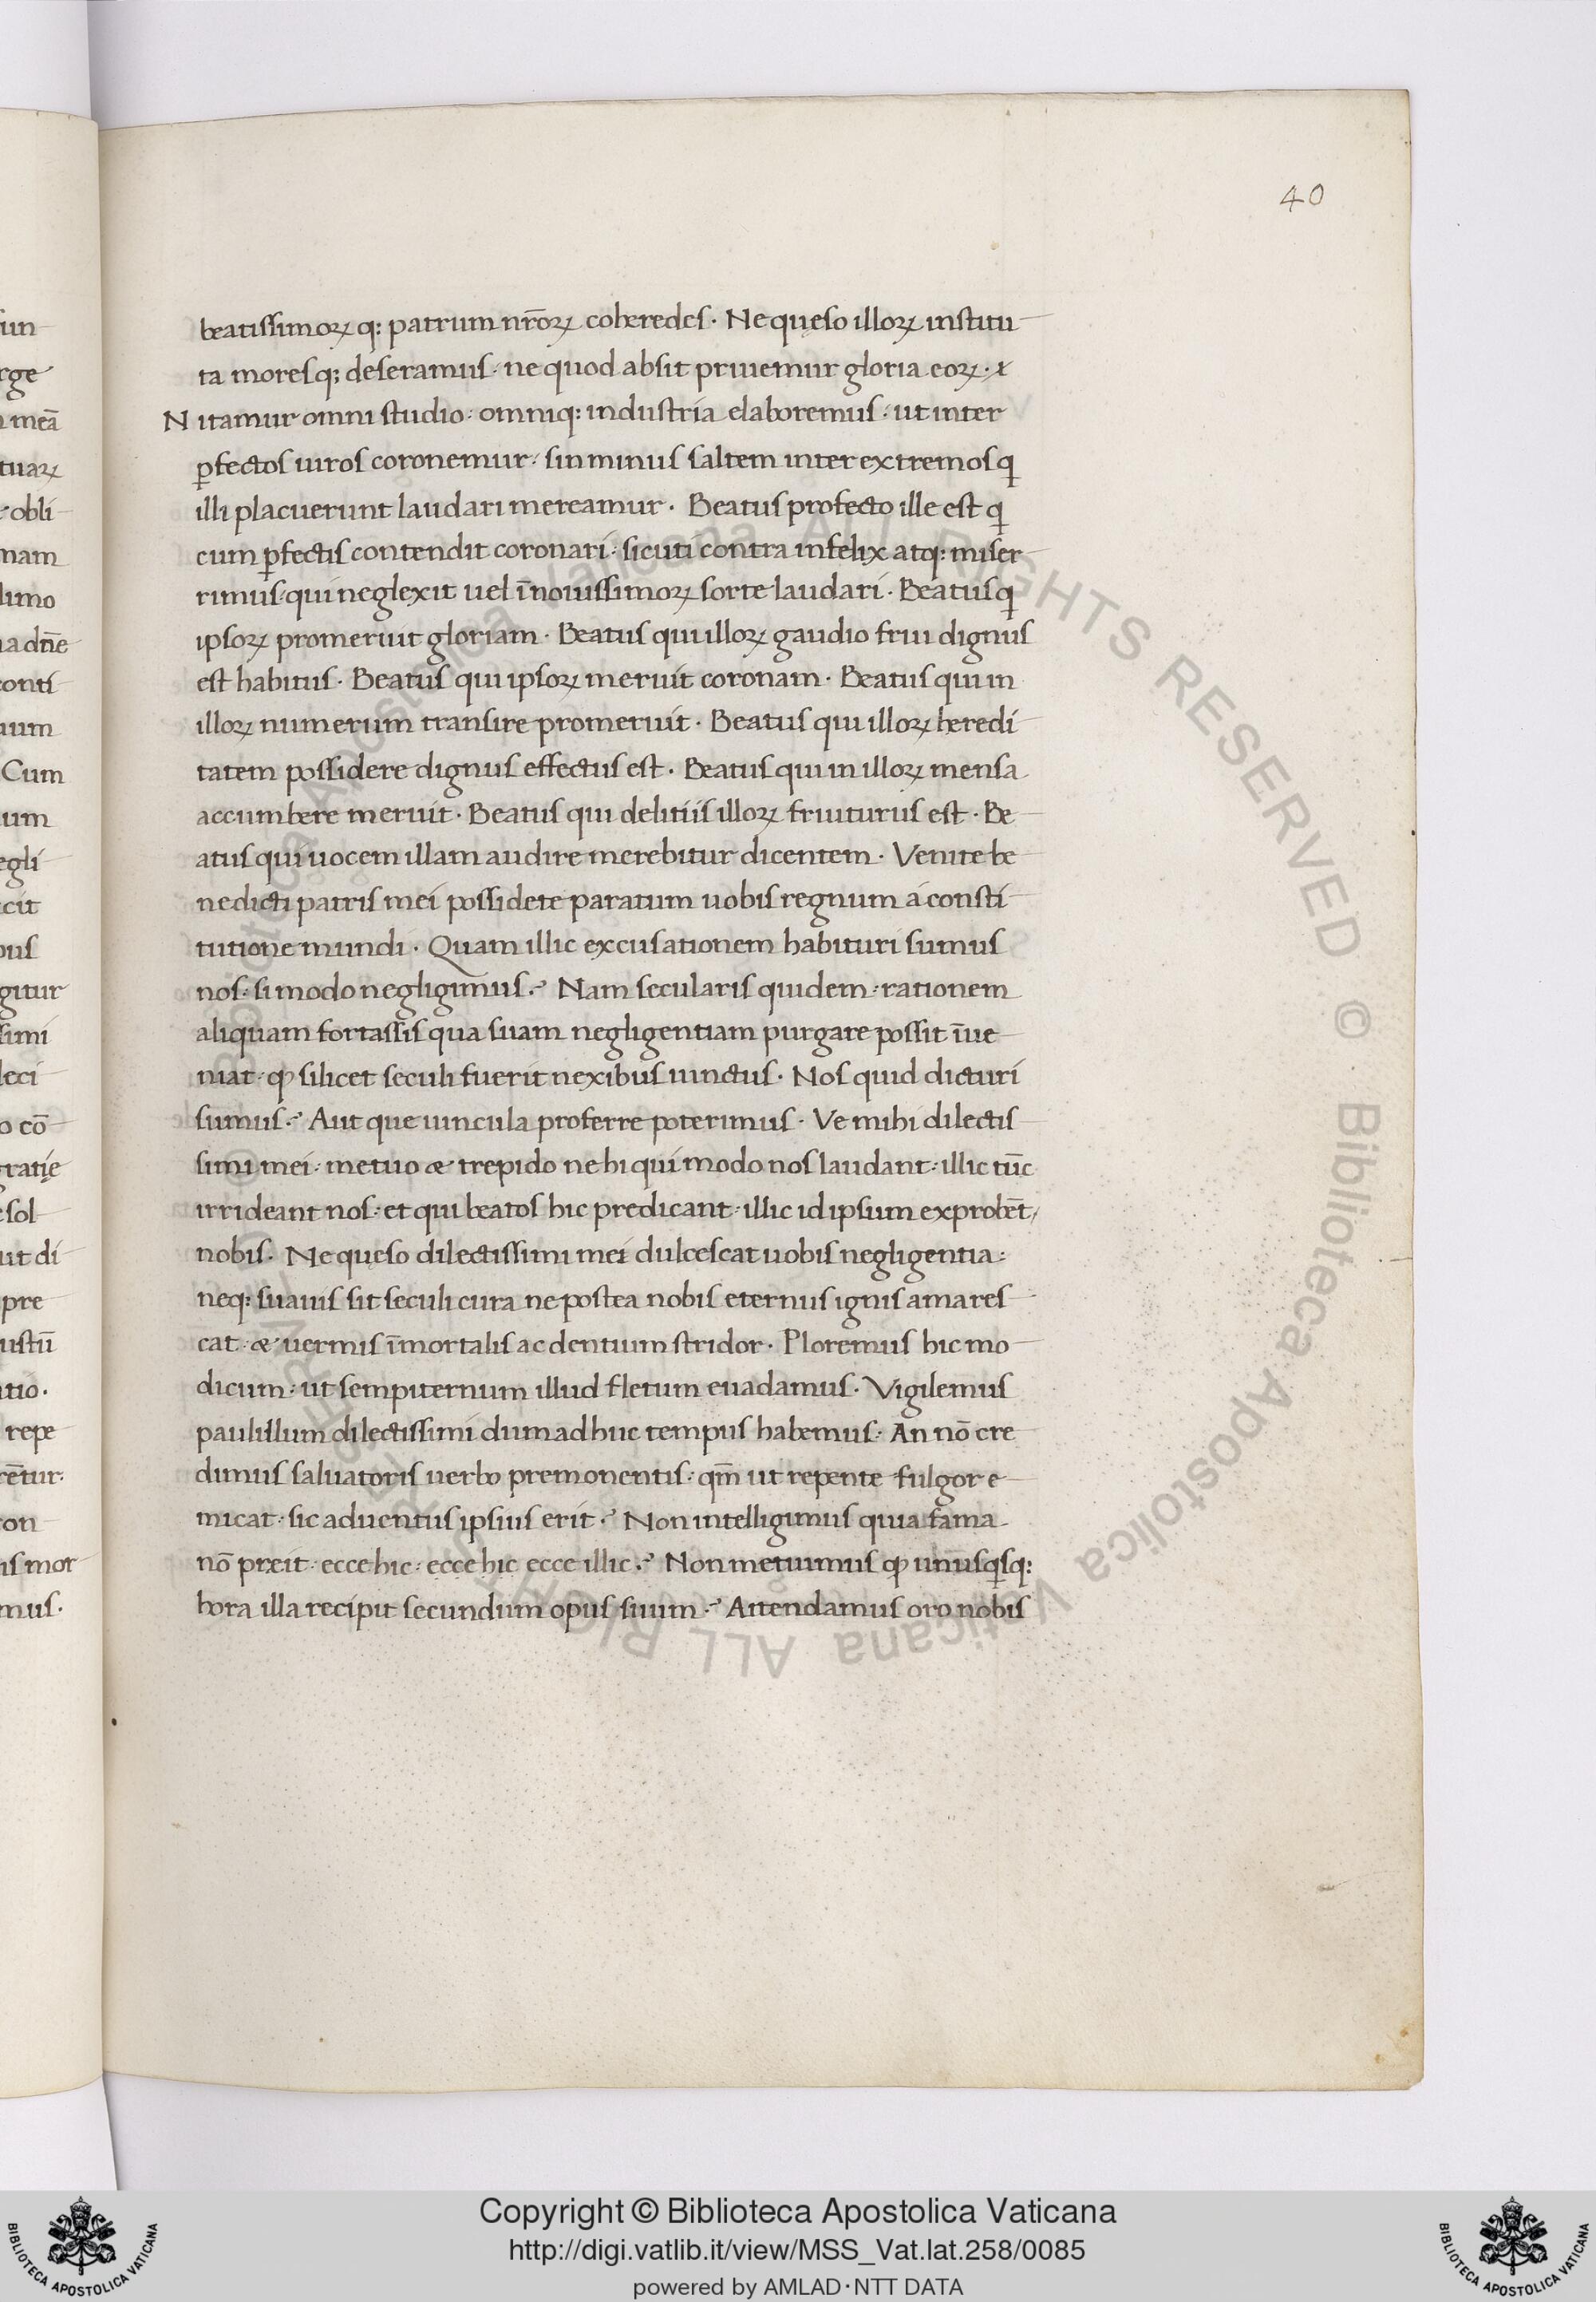 40
beatissimoꝝ q: patrum nr̄oꝝ coheredes · Ne quęso illoꝝ institu
ta moresq; deseramus · ne quod absit priuemur gloria eoꝝ ·
N itamur omni studio : omniq: industria elaboremus : ut inter
ꝑfectos uiros coronemur : sin minus saltem inter extremos qͥ
illi placuerunt laudari mereamur · Beatus profecto ille est qͥ
cum ꝑfectis contendit coronari : sicuti contra infelix atq: miser
rimus · qui neglexit uel ī nouissimoꝝ sorte laudari · Beatus qͥ
ipsoꝝ promeruit gloriam · Beatus qui illoꝝ gaudio frui dignus
est habitus · Beatus qui ipsoꝝ meruit coronam · Beatus qui in
illoꝝ numerum transire promeruit · Beatus qui illoꝝ heredi
tatem possidere dignus effectus est · Beatus qui in illoꝝ mensa
accumbere meruit · Beatus qui delitiis illoꝝ fruiturus est · Be
atus qui uocem illam audire merebitur dicentem · Venite be
nedicti patris mei possidete paratum uobis regnum a consti
tutione mundi · Quam illic excusationem habituri sumus
nos · si modo negligimus ? Nam secularis quidem : rationem
aliquam fortassis qua suam negligentiam purgare possit īue
niat · ꝙ silicet seculi fuerit nexibus uinctus · Nos quid dicturi
sumus ? Aut que uincula proferre poterimus · Ve mihi dilectis
simi mei : metuo æ trepido ne hi qui modo nos laudant : illic tūc
irrideant nos : et qui beatos hic predicant : illic id ipsum exprobēt
nobis · Ne quęso dilectissimi mei dulcescat uobis negligentia :
neq: suauis sit seculi cura ne postea nobis eternus ignis amares
cat · æ uermis īmortalis ac dentium stridor · Ploremus hic mo
dicum : ut sempiternum illud fletum euadamus · Vigilemus
paulillum dilectissimi dum adhuc tempus habemus : An nō cre
dimus saluatoris uerbo premonentis : qm̄ ut repente fulgor e
micat · sic aduentus ipsius erit ? Non intelligimus quia fama
nō preit · ecce hic · ecce hic ecce illic ? Non metuimus ꝙ unusqͥsq:
hora illa recipit secundum opus suum ? Attendamus oro nobis
un
rge
meā
tuaꝝ
obli
nam
limo
a dn̄e
conti
uum
Cum
um
egli
cit
bus
gitur
simi
leci
o cō
gratię
sol
ut di
pre
ustū
tio ·
repe
rētur :
on
is mor
mus ·
© Biblioteca Apostolica Vaticana ALL RIGHTS RESERVED © Biblioteca Apostolica Vaticana ALL RIGHTS RESERVED
Copyright © Biblioteca Apostolica Vaticana
http://digi.vatlib.it/view/MSS_Vat.lat.258/0085
powered by AMLAD·NTT DATA
BIBLIOTECA APOSTOLICA VATICANA
BIBLIOTECA APOSTOLICA VATICANA